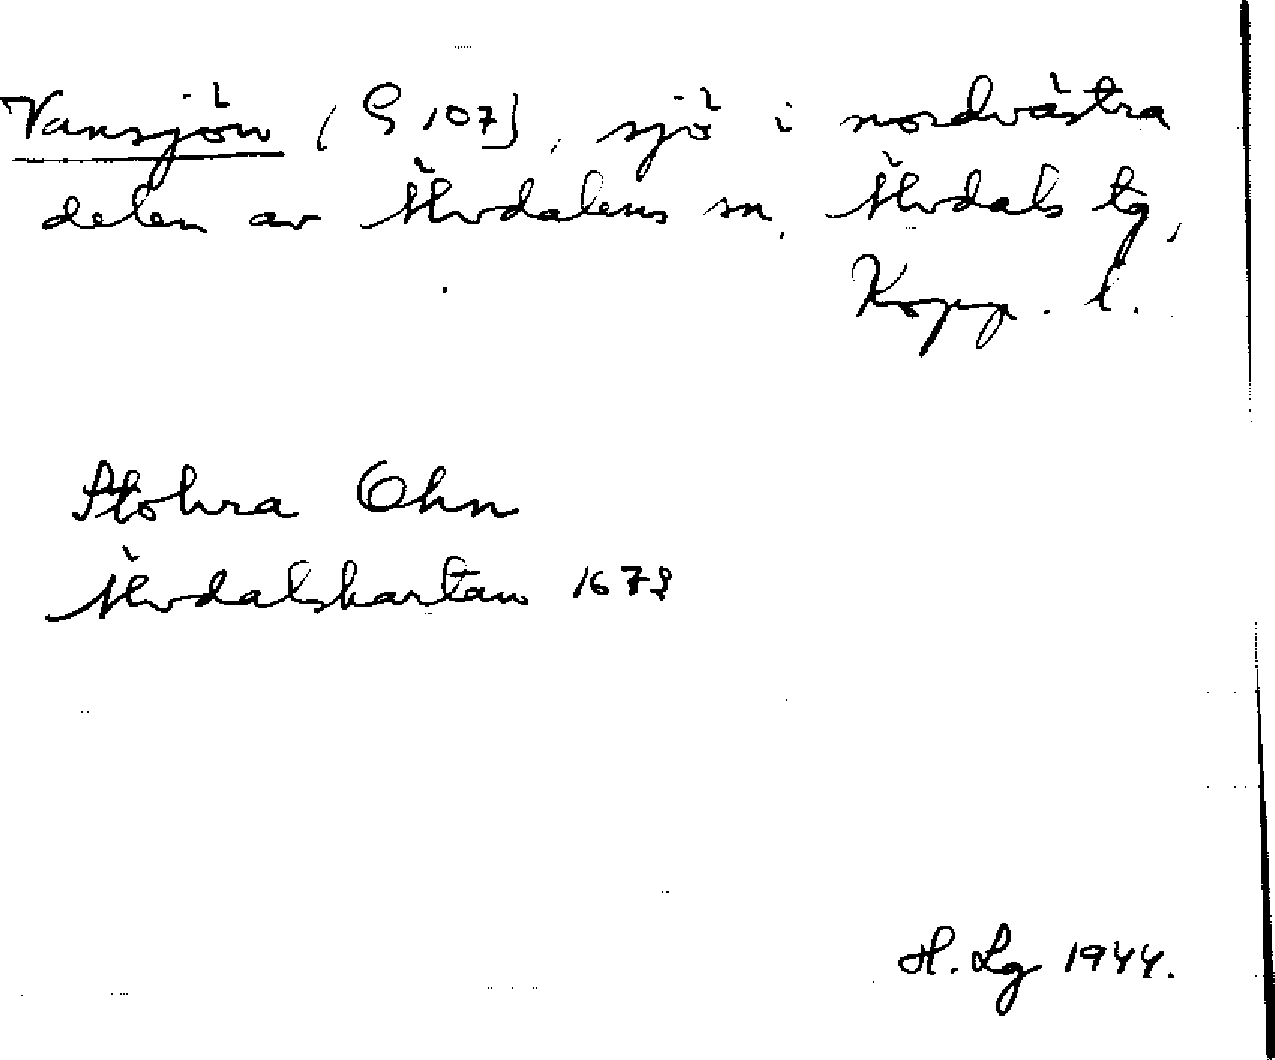 Vansjön (G 107), sjö i nordvästra
delen av Älvdalens sn, Älvdals tg,
Kopp. l.
Stohra Ohn
Älvdalskartan 1678
H. Lg 1944.